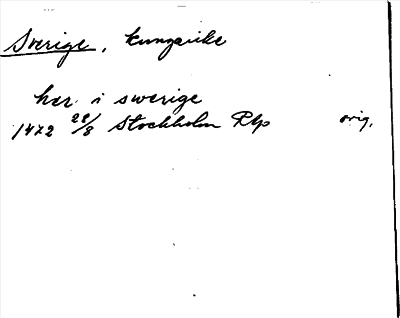 Sverige, kungarike
här i swerige
1472 28/8 Stockholm Rp orig.